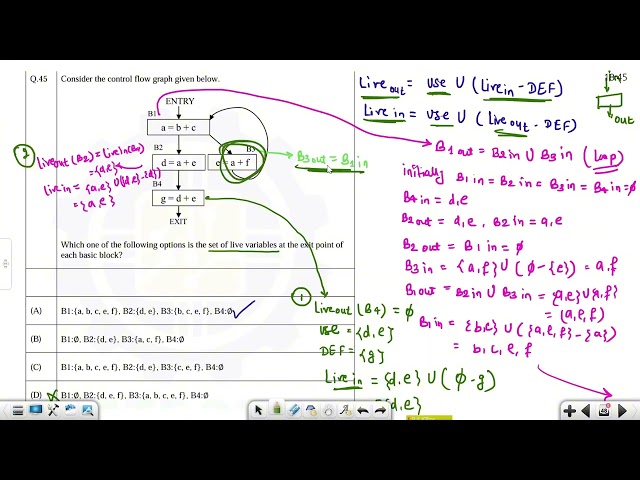 Q.45 Consider the control flow graph given below.
ENTRY
B1
a = b + c
B2
d = a + e
B3
e = a + f
B4
g = d + e
EXIT
Which one of the following options is the set of live variables at the exit point of
each basic block?
(A) B1:{a, b, c, e, f}, B2:{d, e}, B3:{b, c, e, f}, B4:∅
(B) B1:∅, B2:{d, e}, B3:{a, c, f}, B4:∅
(C) B1:{a, b, c, e, f}, B2:{d, e}, B3:{c, e, f}, B4:∅
(D) B1:∅, B2:{d, e, f}, B3:{a, b, c, e, f}, B4:∅
2
Live out (B2) = Live in (B4)
= {d,e}
Live in = {a,e} ∪ ({d,e}-{d})
= {a,e}
B3 out = B1 in
1
Live out (B4) = ∅
use = {d,e}
DEF = {g}
Live in = {d,e} ∪ (∅-g)
{d,e}
Live out = use ∪ (Live in - DEF)
Live in = use ∪ (Live out - DEF)
in
45
out
B1 out = B2 in ∪ B3 in (Loop)
initially B1 in = B2 in = B3 in = B4 in = ∅
B4 in = d,e
B2 out = d,e, B2 in = a,e
B2 out = B1 in = ∅
B3 in = {a,f} ∪ (∅-{e}) = a,f
B1 out = B2 in ∪ B3 in = {a,e} ∪ {a,f}
= {a,e,f}
B1 in = {b,c} ∪ ({a,e,f}-{a})
= b,c,e,f
48